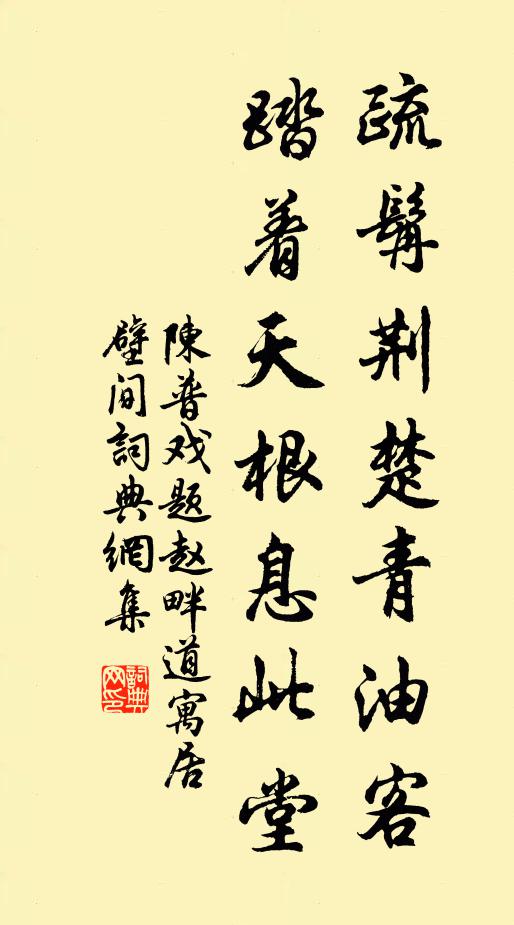 疏髯荆楚青油客
踏着天根息此堂
陳普戏题赵畔道寓居
壁间詞典網集
詞典
网印